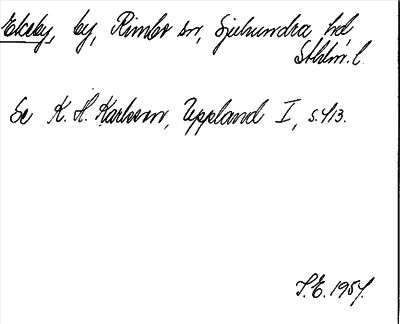 Ekeby, by, Rimbo sn, Sjuhundra hd,
Sthlm. l.
Se K. H. Karlsson, Uppland I, s. 413.
S.E. 1957.